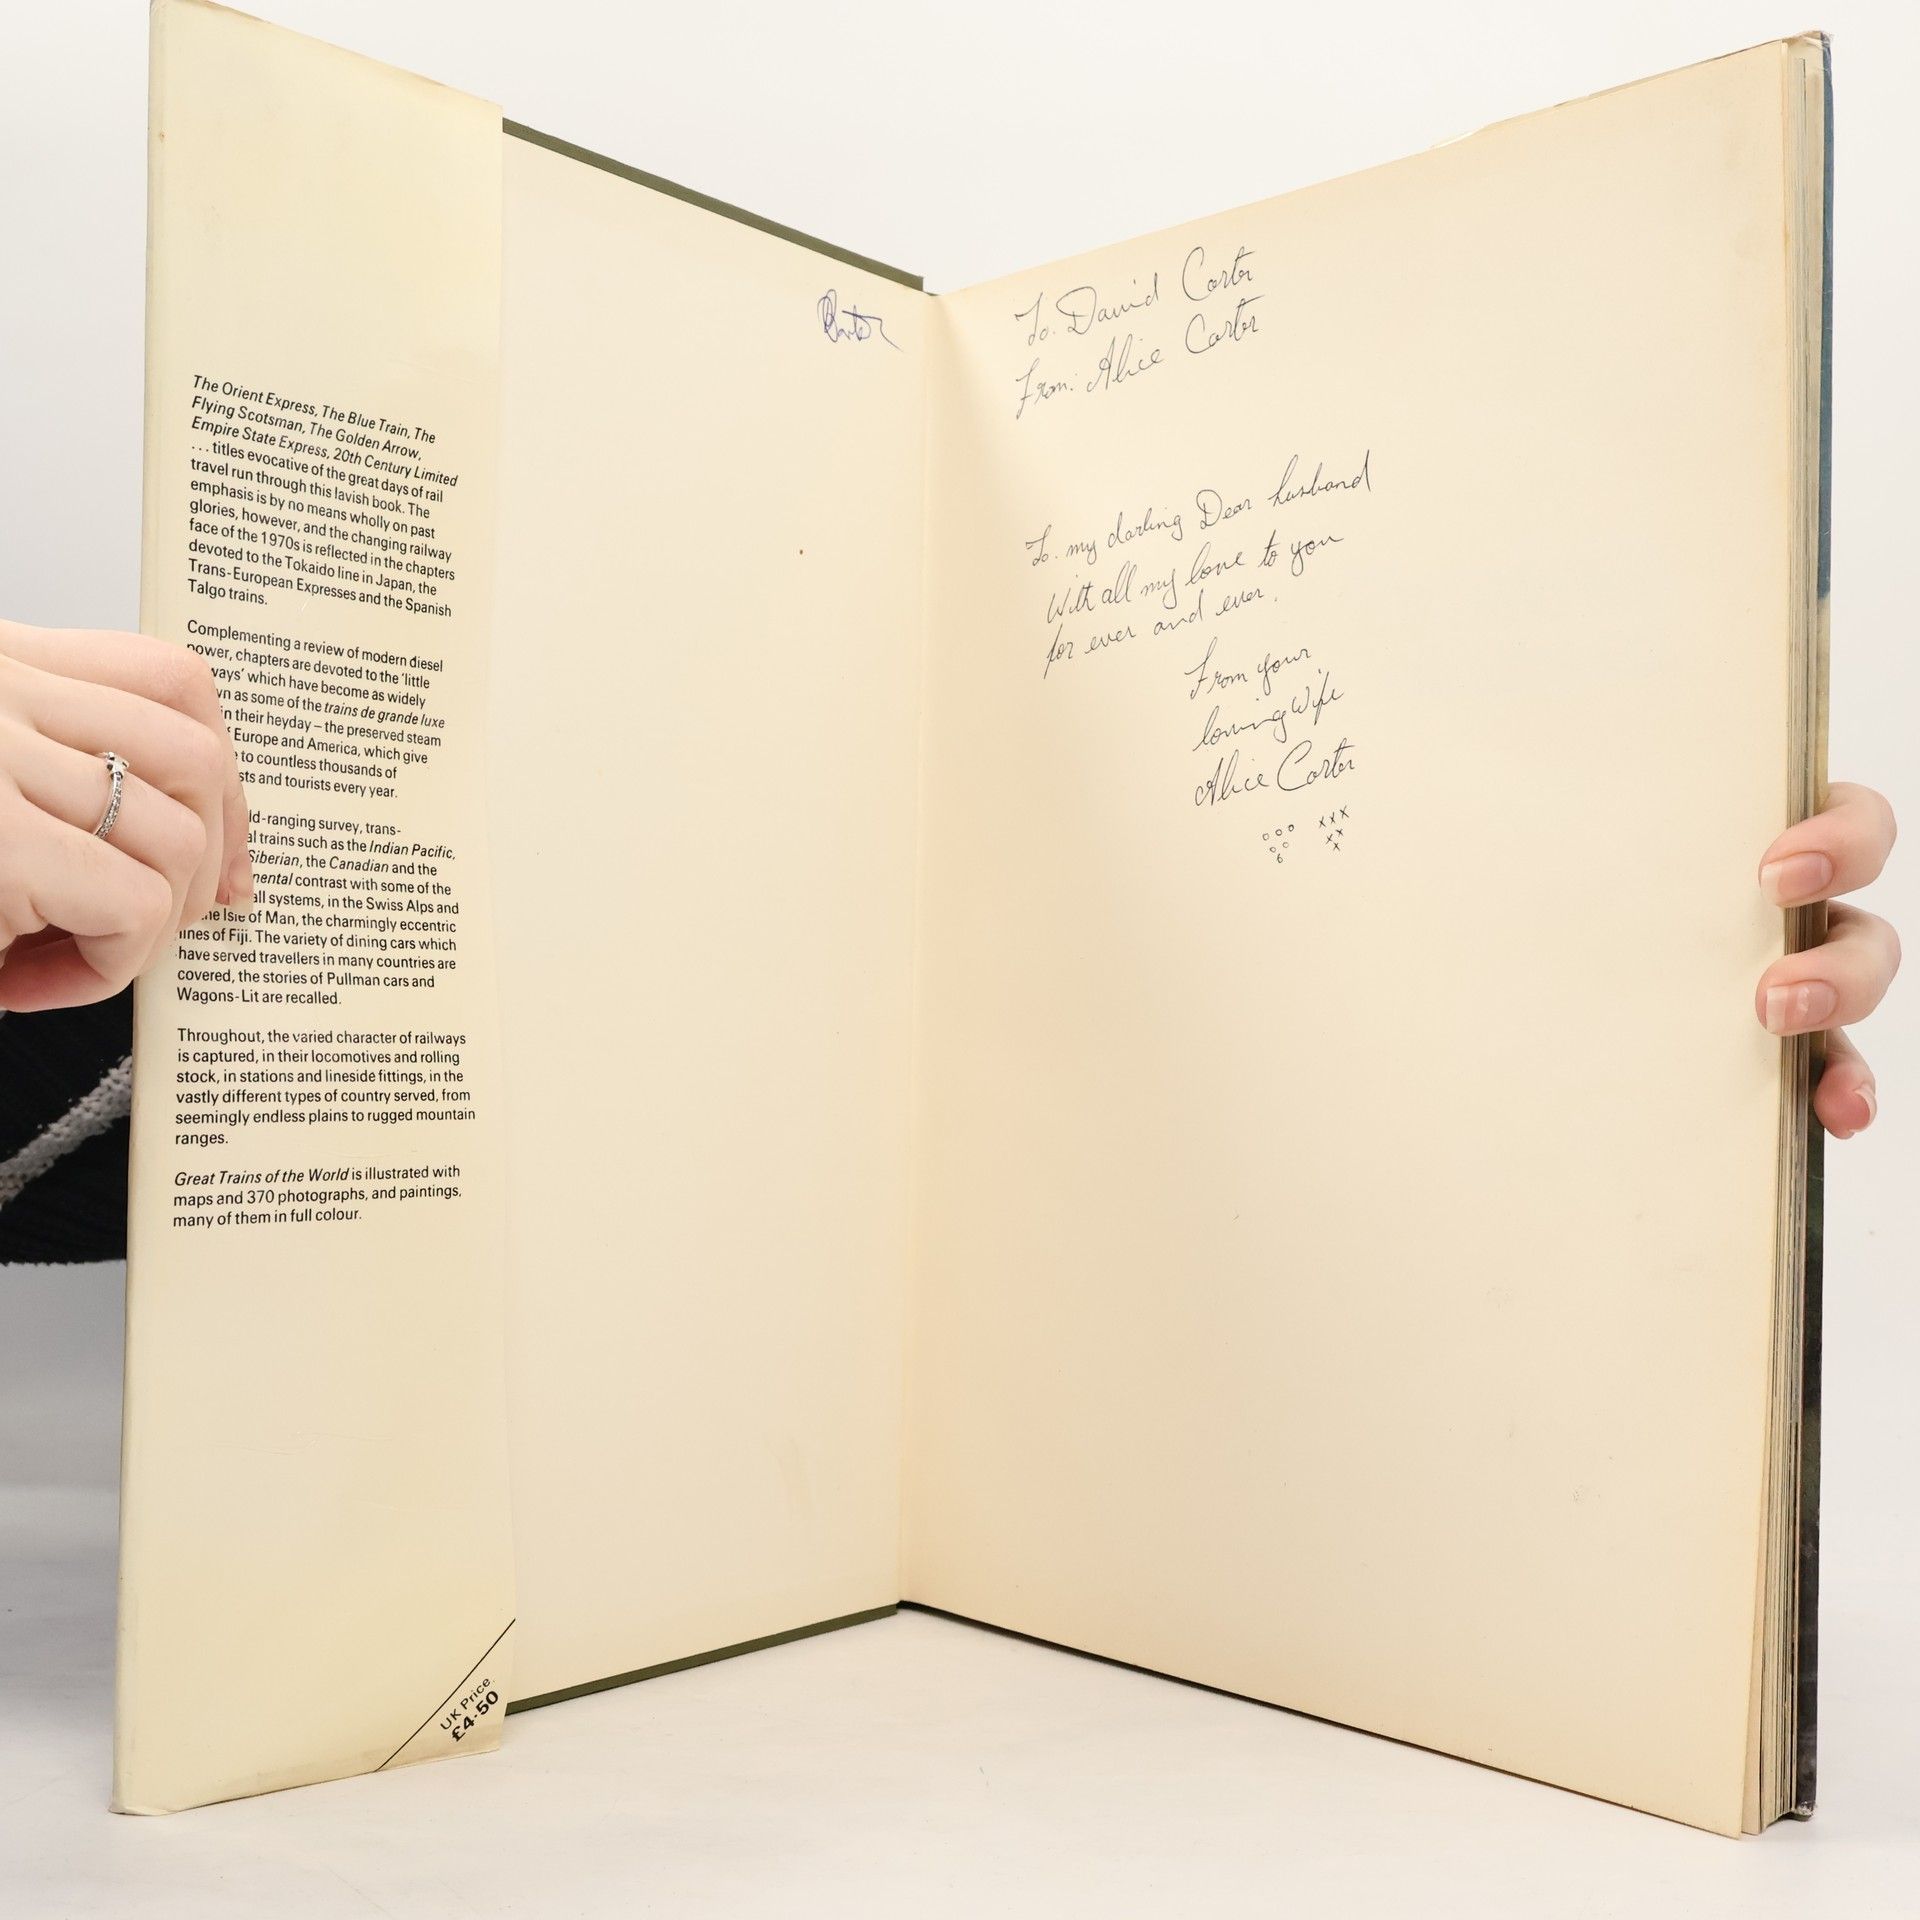 The Orient Express, The Blue Train, The
Flying Scotsman, The Golden Arrow,
Empire State Express, 20th Century Limited
... titles evocative of the great days of rail
travel run through this lavish book. The
emphasis is by no means wholly on past
glories, however, and the changing railway
face of the 1970s is reflected in the chapters
devoted to the Tokaido line in Japan, the
Trans-European Expresses and the Spanish
Talgo trains.
Complementing a review of modern diesel
power, chapters are devoted to the 'little
ways' which have become as widely
as some of the trains de grande luxe
in their heyday – the preserved steam
Europe and America, which give
to countless thousands of
and tourists every year.
ranging survey, trans-
trains such as the Indian Pacific,
Siberian, the Canadian and the
contrast with some of the
systems, in the Swiss Alps and
the Isle of Man, the charmingly eccentric
lines of Fiji. The variety of dining cars which
have served travellers in many countries are
covered, the stories of Pullman cars and
Wagons-Lit are recalled.
Throughout, the varied character of railways
is captured, in their locomotives and rolling
stock, in stations and lineside fittings, in the
vastly different types of country served, from
seemingly endless plains to rugged mountain
ranges.
Great Trains of the World is illustrated with
maps and 370 photographs, and paintings,
many of them in full colour.
UK Price
£4·50
To. David Carter
From: Alice Carter
To. my darling Dear husband
With all my love to you
for ever and ever.
From your
loving Wife
Alice Carter
ooo xxx
oo xx
o x